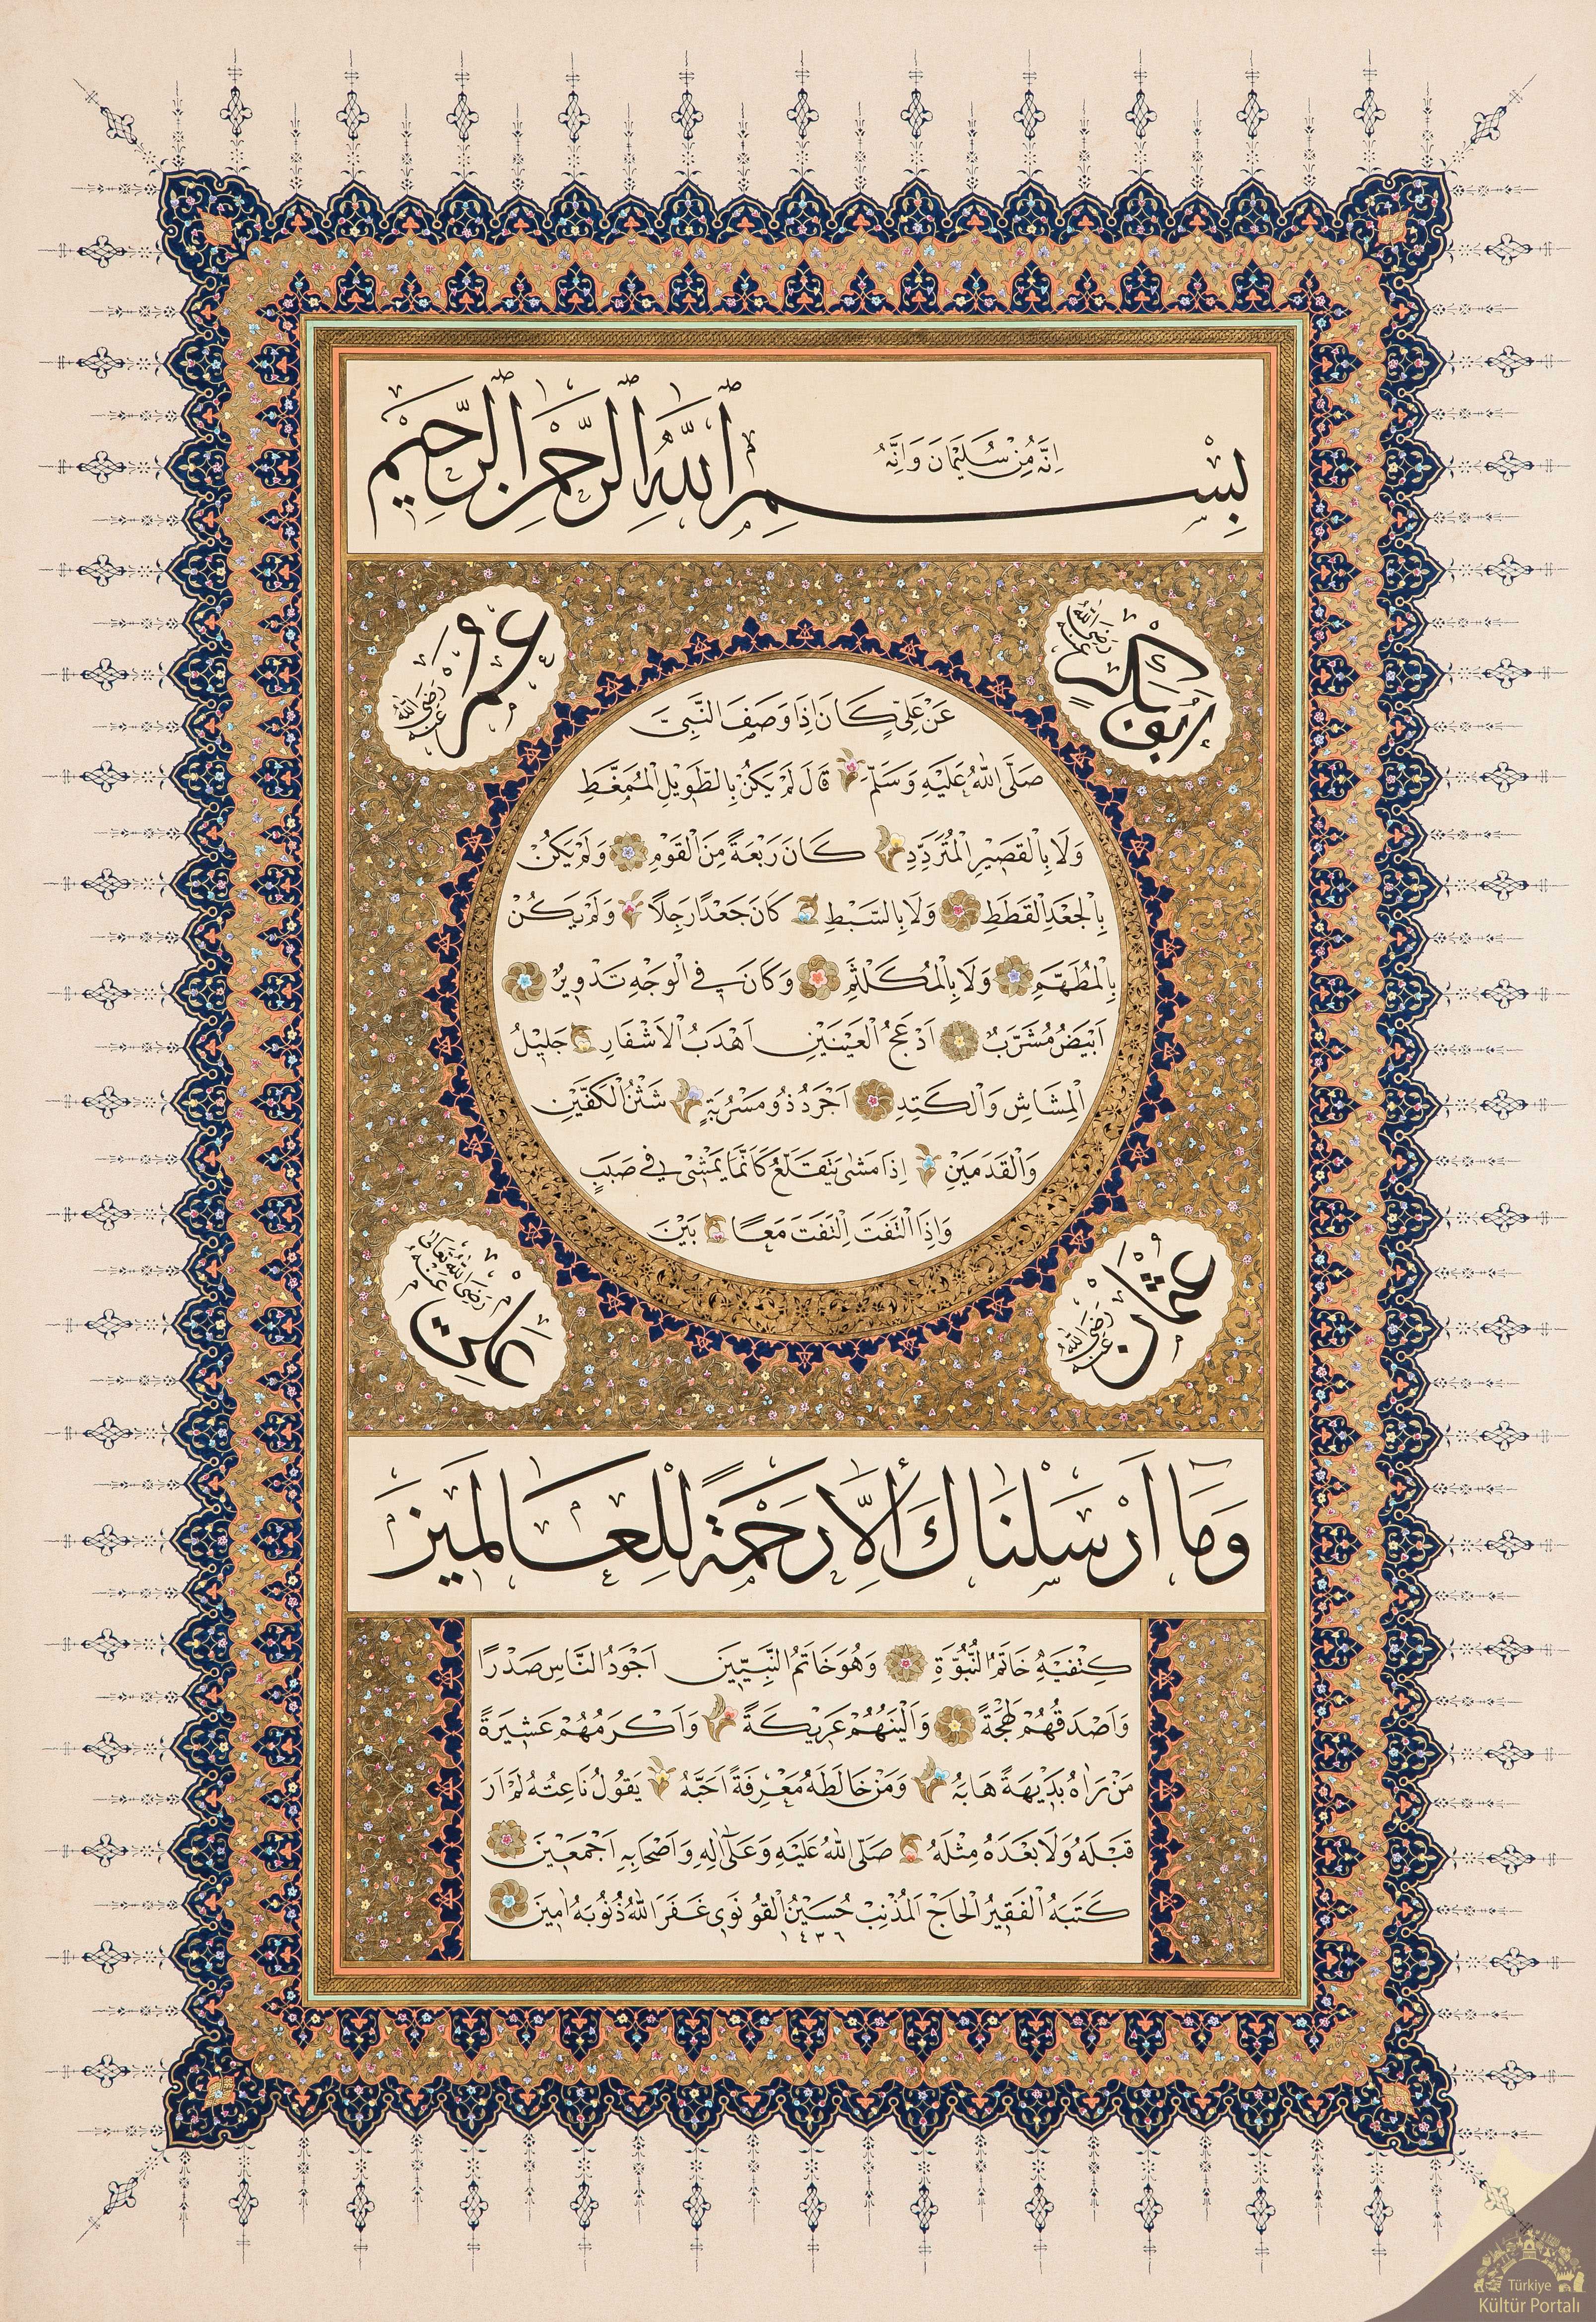 اِنَّهُ مِنْ سُلَيْمَانَ وَاِنَّهُ
بِسْمِ اللّٰهِ الرَّحْمٰنِ الرَّحِيمِ
اَبُو بَكْرٍ رَضِيَ اللّٰهُ عَنْهُ
عُمَرُ رَضِيَ اللّٰهُ عَنْهُ
عَنْ عَلِيٍّ كَانَ اِذَا وَصَفَ النَّبِيَّ
صَلَّى اللّٰهُ عَلَيْهِ وَسَلَّمَ قَالَ لَمْ يَكُنْ بِالطَّوِيلِ الْمُمَغَّطِ
وَلَا بِالْقَصِيرِ الْمُتَرَدِّدِ كَانَ رَبْعَةً مِنَ الْقَوْمِ وَلَمْ يَكُنْ
بِالْجَعْدِ الْقَطَطِ وَلَا بِالسَّبْطِ كَانَ جَعْدًا رَجِلًا وَلَمْ يَكُنْ
بِالْمُطَهَّمِ وَلَا بِالْمُكَلْثَمِ وَكَانَ فِي الْوَجْهِ تَدْوِيرٌ
اَبْيَضُ مُشَرَّبٌ اَدْعَجُ الْعَيْنَيْنِ اَهْدَبُ الْاَشْفَارِ جَلِيلُ
الْمُشَاشِ وَالْكَتِدِ اَجْرَدُ ذُو مَسْرُبَةٍ شَثْنُ الْكَفَّيْنِ
وَالْقَدَمَيْنِ اِذَا مَشٰى يَتَقَلَّعُ كَاَنَّمَا يَمْشِي فِي صَبَبٍ
وَاِذَا الْتَفَتَ اِلْتَفَتَ مَعًا بَيْنَ
عُثْمَانُ رَضِيَ اللّٰهُ عَنْهُ
عَلِيٌّ رَضِيَ اللّٰهُ تَعَالٰى عَنْهُ
وَمَا اَرْسَلْنَاكَ اِلَّا رَحْمَةً لِلْعَالَمِينَ
كَتِفَيْهِ خَاتَمُ النُّبُوَّةِ وَهُوَ خَاتَمُ النَّبِيِّينَ اَجْوَدُ النَّاسِ صَدْرًا
وَاَصْدَقُهُمْ لَهْجَةً وَاَلْيَنُهُمْ عَرِيكَةً وَاَكْرَمُهُمْ عَشِيرَةً
مَنْ رَاٰهُ بَدِيهَةً هَابَهُ وَمَنْ خَالَطَهُ مَعْرِفَةً اَحَبَّهُ يَقُولُ نَاعِتُهُ لَمْ اَرَ
قَبْلَهُ وَلَا بَعْدَهُ مِثْلَهُ صَلَّى اللّٰهُ عَلَيْهِ وَعَلٰى اٰلِهِ وَاَصْحَابِهِ اَجْمَعِينَ
كَتَبَهُ الْفَقِيرُ الْحَاجُّ الْمُذْنِبُ حُسَيْنُ الْقُونَوِي غَفَرَ اللّٰهُ ذُنُوبَهُ اٰمِينَ
١٤٣٦
Türkiye
Kültür Portalı